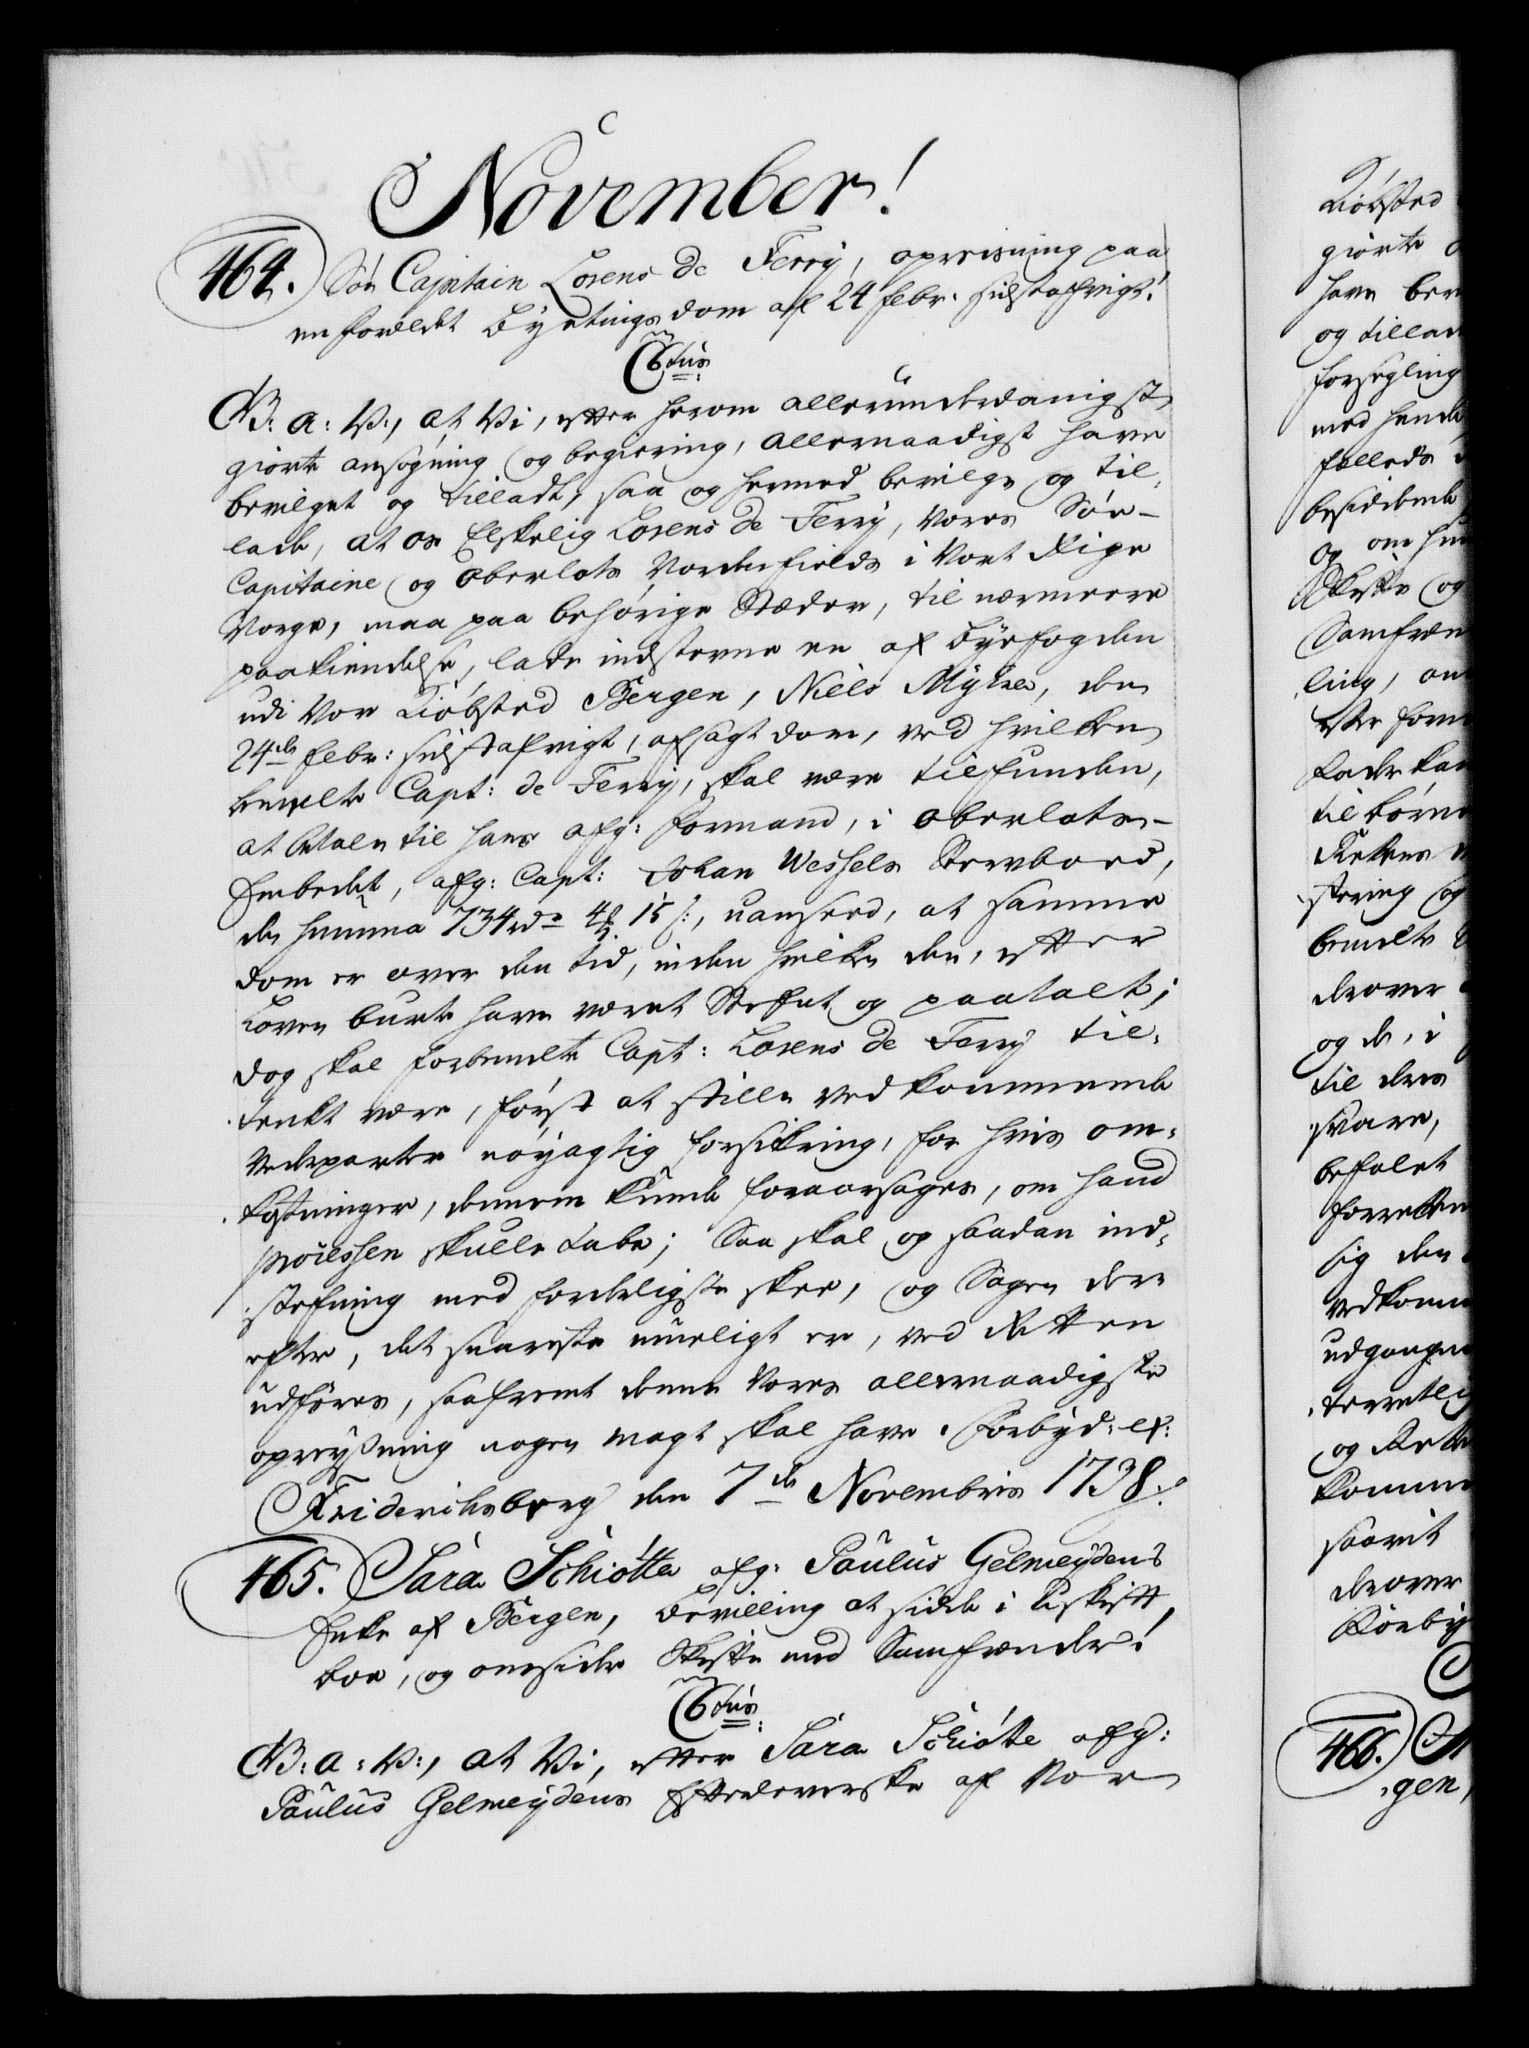 November!
464. Søe Capitain Lorens de Ferry, opreisning paa
en forældet Byetingsdom af 24 Febr. sidstafvigt!
C 6tus
G: a: V:, at Vi, efter herom allerunderdanigst
giorte ansøgning og begiering, allernaadigst have
bevilget og tilladt, saa og hermed bevilge og til-
lade, at os Elskelig Lorens de Ferry, Vores Søe-
Capitaine og Oberlots Nordenfields i Vort Rige
Norge, maa paa behørige Stæder, til nærmeere
paakiendelse, lade indstevne en af Byefogden
udi Vor Kiøbsted Bergen, Niels Mÿhre, den
24de Febr: sidstafvigt, afsagt dom, ved hvilken
bemelte Capt: de Ferrÿ, skal være tilfunden,
at betale til hans afg: formand, i Oberlots-
Embedet, afg: Capt: Johan Wessels Stervboed,
den summa 734 rdr 4 15 s:, uanseed, at samme
dom er over den tid, inden hvilken den, efter
Loven burte have været Stefnt og paatalt;
dog skal forbemelte Capt: Lorens de Ferrÿ til-
tenkt være, først at stille vedkommende
Vederparter nøyagtig forsikring, for hvis om-
kostninger, dennem kunde foraarsages, om hand
processen skulle tabe; Saa skal og saadan ind-
stefning med forderligste skee, og Sagen der-
efter, det snareste mueligt er, ved Retten
udføres, saafremt denne Vores allernaadigste
opreysning nogen magt skal have. Forbyd: ec:
Friderichsberg den 7de Novembris 1738.
465. Sara Schiøtte afg: Paulus Gelmeÿdens
Enke af Bergen, Bevilling at sidde i Uskift
boe, og omsider Skifte med Samfrender!
C 6tus
G: a: V:, at Vi, efter Sara Schiøtte afg:
Paulus Gelmeÿdens Efterleverske af Vor
Kiøbsted
giorte
have bev
og tillad
forsegling
med hende
fælleds
besiddende
og om hun
Skifte og
Samfren
ling, an
til børne
Rettens
bemelte
derover
og de, i
til deres
svare,
befalet
forretten
sig den
vedkomme
udgangen
og Rett
komme
saavit
derover
Forby
466.
gen,